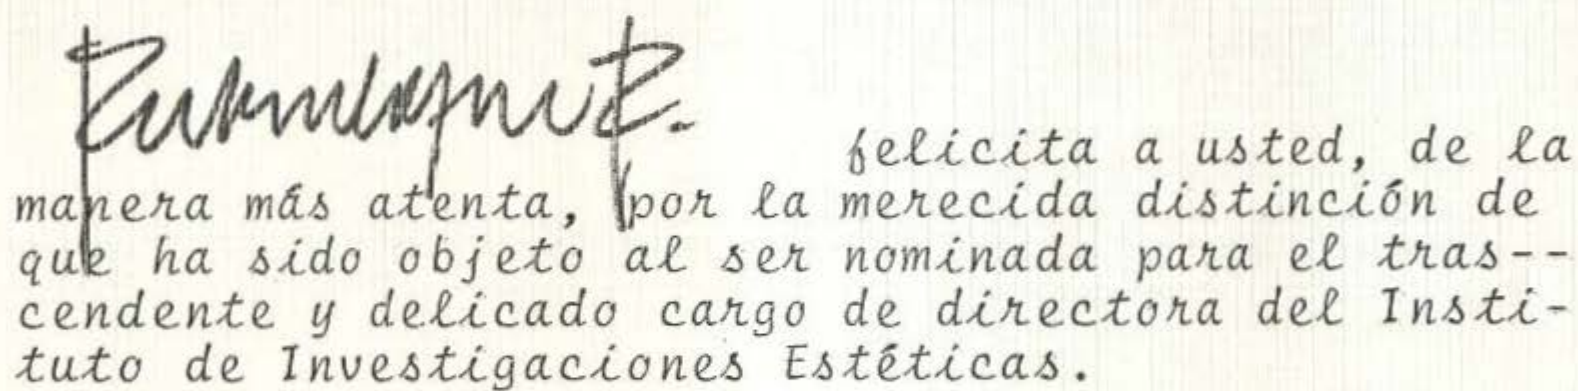 felicita a usted, de la
manera más atenta, por la merecida distinción de
que ha sido objeto al ser nominada para el tras--
cendente y delicado cargo de directora del Insti-
tuto de Investigaciones Estéticas.